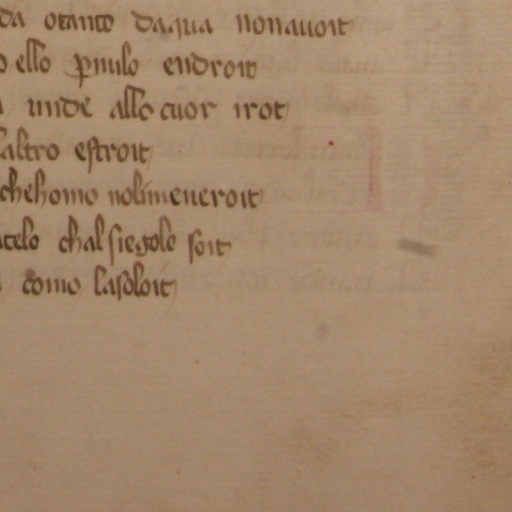 da otanto daqua nonauoit
o ello pnulo endroit
unde allo cuor irot
altro estroit
chehomo nolimeneroit
telo chalsiegolo soit
como lasoloit